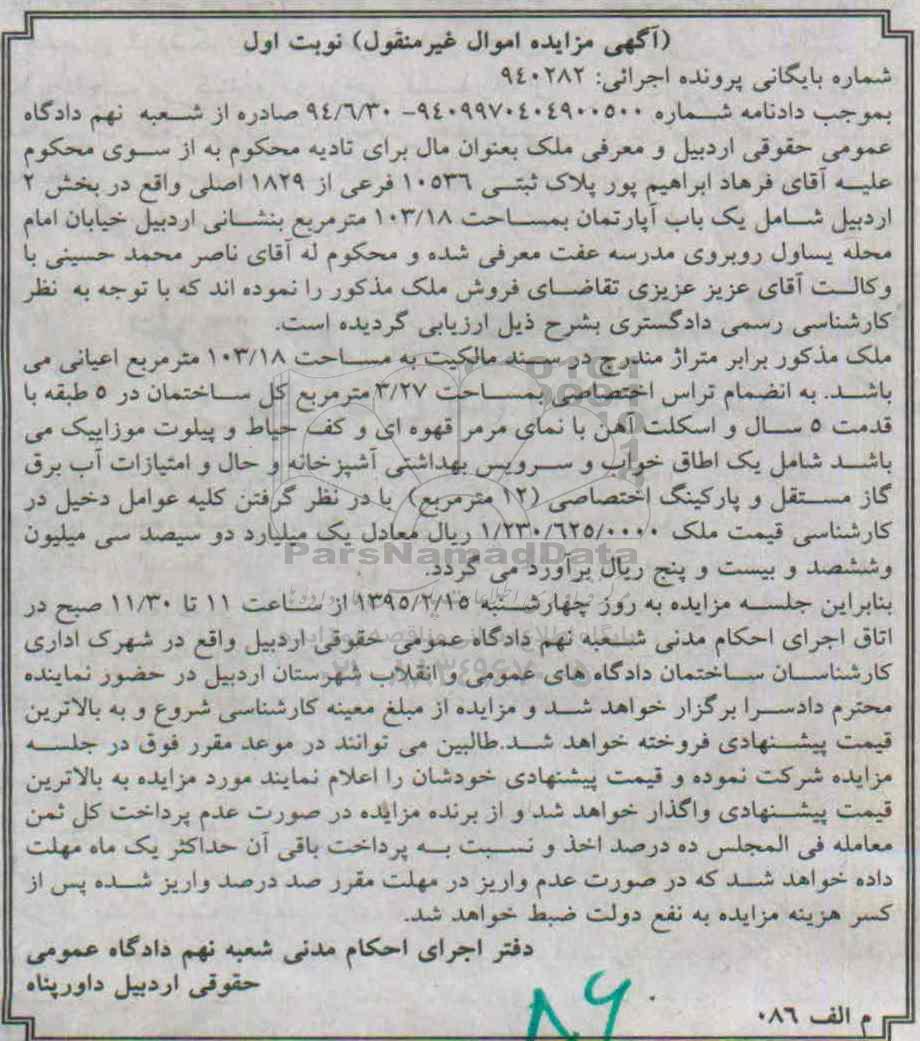 (آگهی مزایده اموال غیرمنقول) نوبت اول
شماره بایگانی پرونده اجرائی: ۹۴۰۲۸۲
بموجب دادنامه شماره ۹۴۰۹۹۷۰۴۰۴۹۰۰۵۰۰- ۹۴/۶/۳۰ صادره از شعبه نهم دادگاه
عمومی حقوقی اردبیل و معرفی ملک بعنوان مال برای تادیه محکوم به از سوی محکوم
علیه آقای فرهاد ابراهیم پور پلاک ثبتی ۱۰۵۳۶ فرعی از ۱۸۲۹ اصلی واقع در بخش ۲
اردبیل شامل یک باب آپارتمان بمساحت ۱۰۳/۱۸ مترمربع بنشانی اردبیل خیابان امام
محله یساول روبروی مدرسه عفت معرفی شده و محکوم له آقای ناصر محمد حسینی با
وکالت آقای عزیز عزیزی تقاضای فروش ملک مذکور را نموده اند که با توجه به نظر
کارشناسی رسمی دادگستری بشرح ذیل ارزیابی گردیده است.
ملک مذکور برابر متراژ مندرج در سند مالکیت به مساحت ۱۰۳/۱۸ مترمربع اعیانی می
باشد. به انضمام تراس اختصاصی بمساحت ۳/۲۷ مترمربع کل ساختمان در ۵ طبقه با
قدمت ۵ سال و اسکلت آهن با نمای مرمر قهوه ای و کف حیاط و پیلوت موزاییک می
باشد شامل یک اطاق خواب و سرویس بهداشتی آشپزخانه و حال و امتیازات آب برق
گاز مستقل و پارکینگ اختصاصی (۱۲ مترمربع) با در نظر گرفتن کلیه عوامل دخیل در
کارشناسی قیمت ملک ۱/۲۳۰/۶۲۵/۰۰۰۰ ریال معادل یک میلیارد دو سیصد سی میلیون
ParsNamadData
وششصد و بیست و پنج ریال برآورد می گردد.
بنابراین جلسه مزایده به روز چهارشنبه ۱۳۹۵/۲/۱۵ از ساعت ۱۱ تا ۱۱/۳۰ صبح در
اتاق اجرای احکام مدنی شعبه نهم دادگاه عمومی حقوقی اردبیل واقع در شهرک اداری
کارشناسان ساختمان دادگاه های عمومی و انقلاب شهرستان اردبیل در حضور نماینده
محترم دادسرا برگزار خواهد شد و مزایده از مبلغ معینه کارشناسی شروع و به بالاترین
قیمت پیشنهادی فروخته خواهد شد.طالبین می توانند در موعد مقرر فوق در جلسه
مزایده شرکت نموده و قیمت پیشنهادی خودشان را اعلام نمایند مورد مزایده به بالاترین
قیمت پیشنهادی واگذار خواهد شد و از برنده مزایده در صورت عدم پرداخت کل ثمن
معامله فی المجلس ده درصد اخذ و نسبت به پرداخت باقی آن حداکثر یک ماه مهلت
داده خواهد شد که در صورت عدم واریز در مهلت مقرر صد درصد واریز شده پس از
کسر هزینه مزایده به نفع دولت ضبط خواهد شد.
دفتر اجرای احکام مدنی شعبه نهم دادگاه عمومی
حقوقی اردبیل داورپناه
م الف ۰۸۶
۸۶